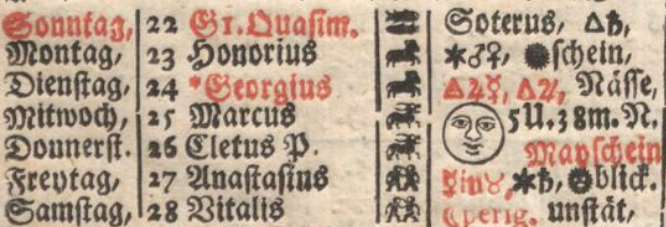 Sonntag, 22 Gr. Quasim. Soterus, △♄,
Montag, 23 Honorius ✶♂♀, schein,
Dienstag, 24 *Georgius △♃☿, △♃, Nässe,
Mitwoch, 25 Marcus 5 U. 38 m. N.
Donnerst. 26 Cletus P. Mayschein
Freytag, 27 Anastasius in ♉, ✶♄, blick.
Samstag, 28 Vitalis perig. unstät,